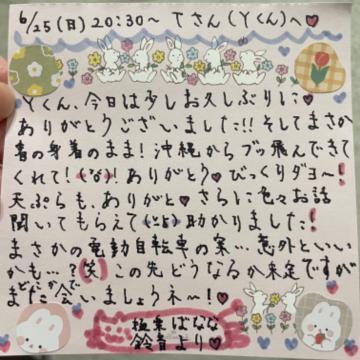 6/25(日) 20:30〜 Tさん(Yくん)へ♥
Yくん、今日は少しお久しぶりに♡
ありがとうございました!!そしてまさか
着の身着のまま!沖縄からブッ飛んできて
くれて!ありがとう♥びっくりダヨー!
天ぷらも、ありがと♥さらに色々お話
聞いてもらえて助かりました!
まさかの電動自転車の案…意外といい
かも…?(笑)この先どうなるか未定ですが
まだどこかで会いましょうネ〜!♥
極楽ばなな
鈴音より♥